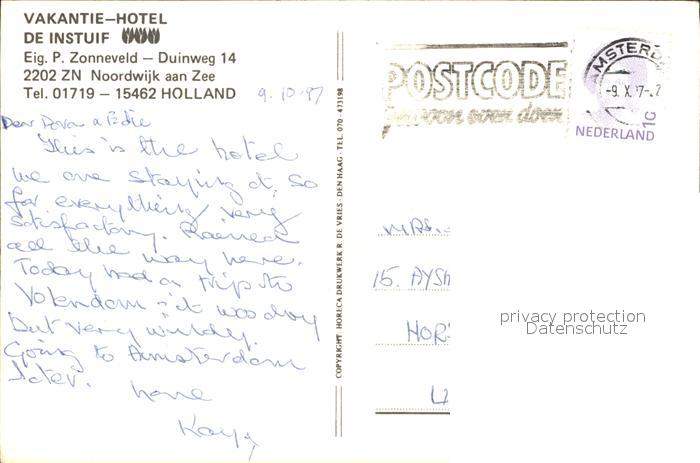 VAKANTIE–HOTEL
DE INSTUIF
Eig. P. Zonneveld – Duinweg 14
2202 ZN Noordwijk aan Zee
Tel. 01719 – 15462 HOLLAND
9.10.87
Dear & Edie
This is the hotel
we are staying at, so
far everything very
satisfactory. Rained
all the way here.
Today had a trip to
Volendam – it was dry
but very windy.
Going to Amsterdam
later.
love
Kay
COPYRIGHT HORECA DRUKWERK R. DE VRIES - DEN HAAG - TEL. 070 - 473198
POSTCODE
gewoon even doen
AMSTERD
-9.X.'7-.2
NEDERLAND
MRS.
15. AYSH
HOR
L
privacy protection
Datenschutz